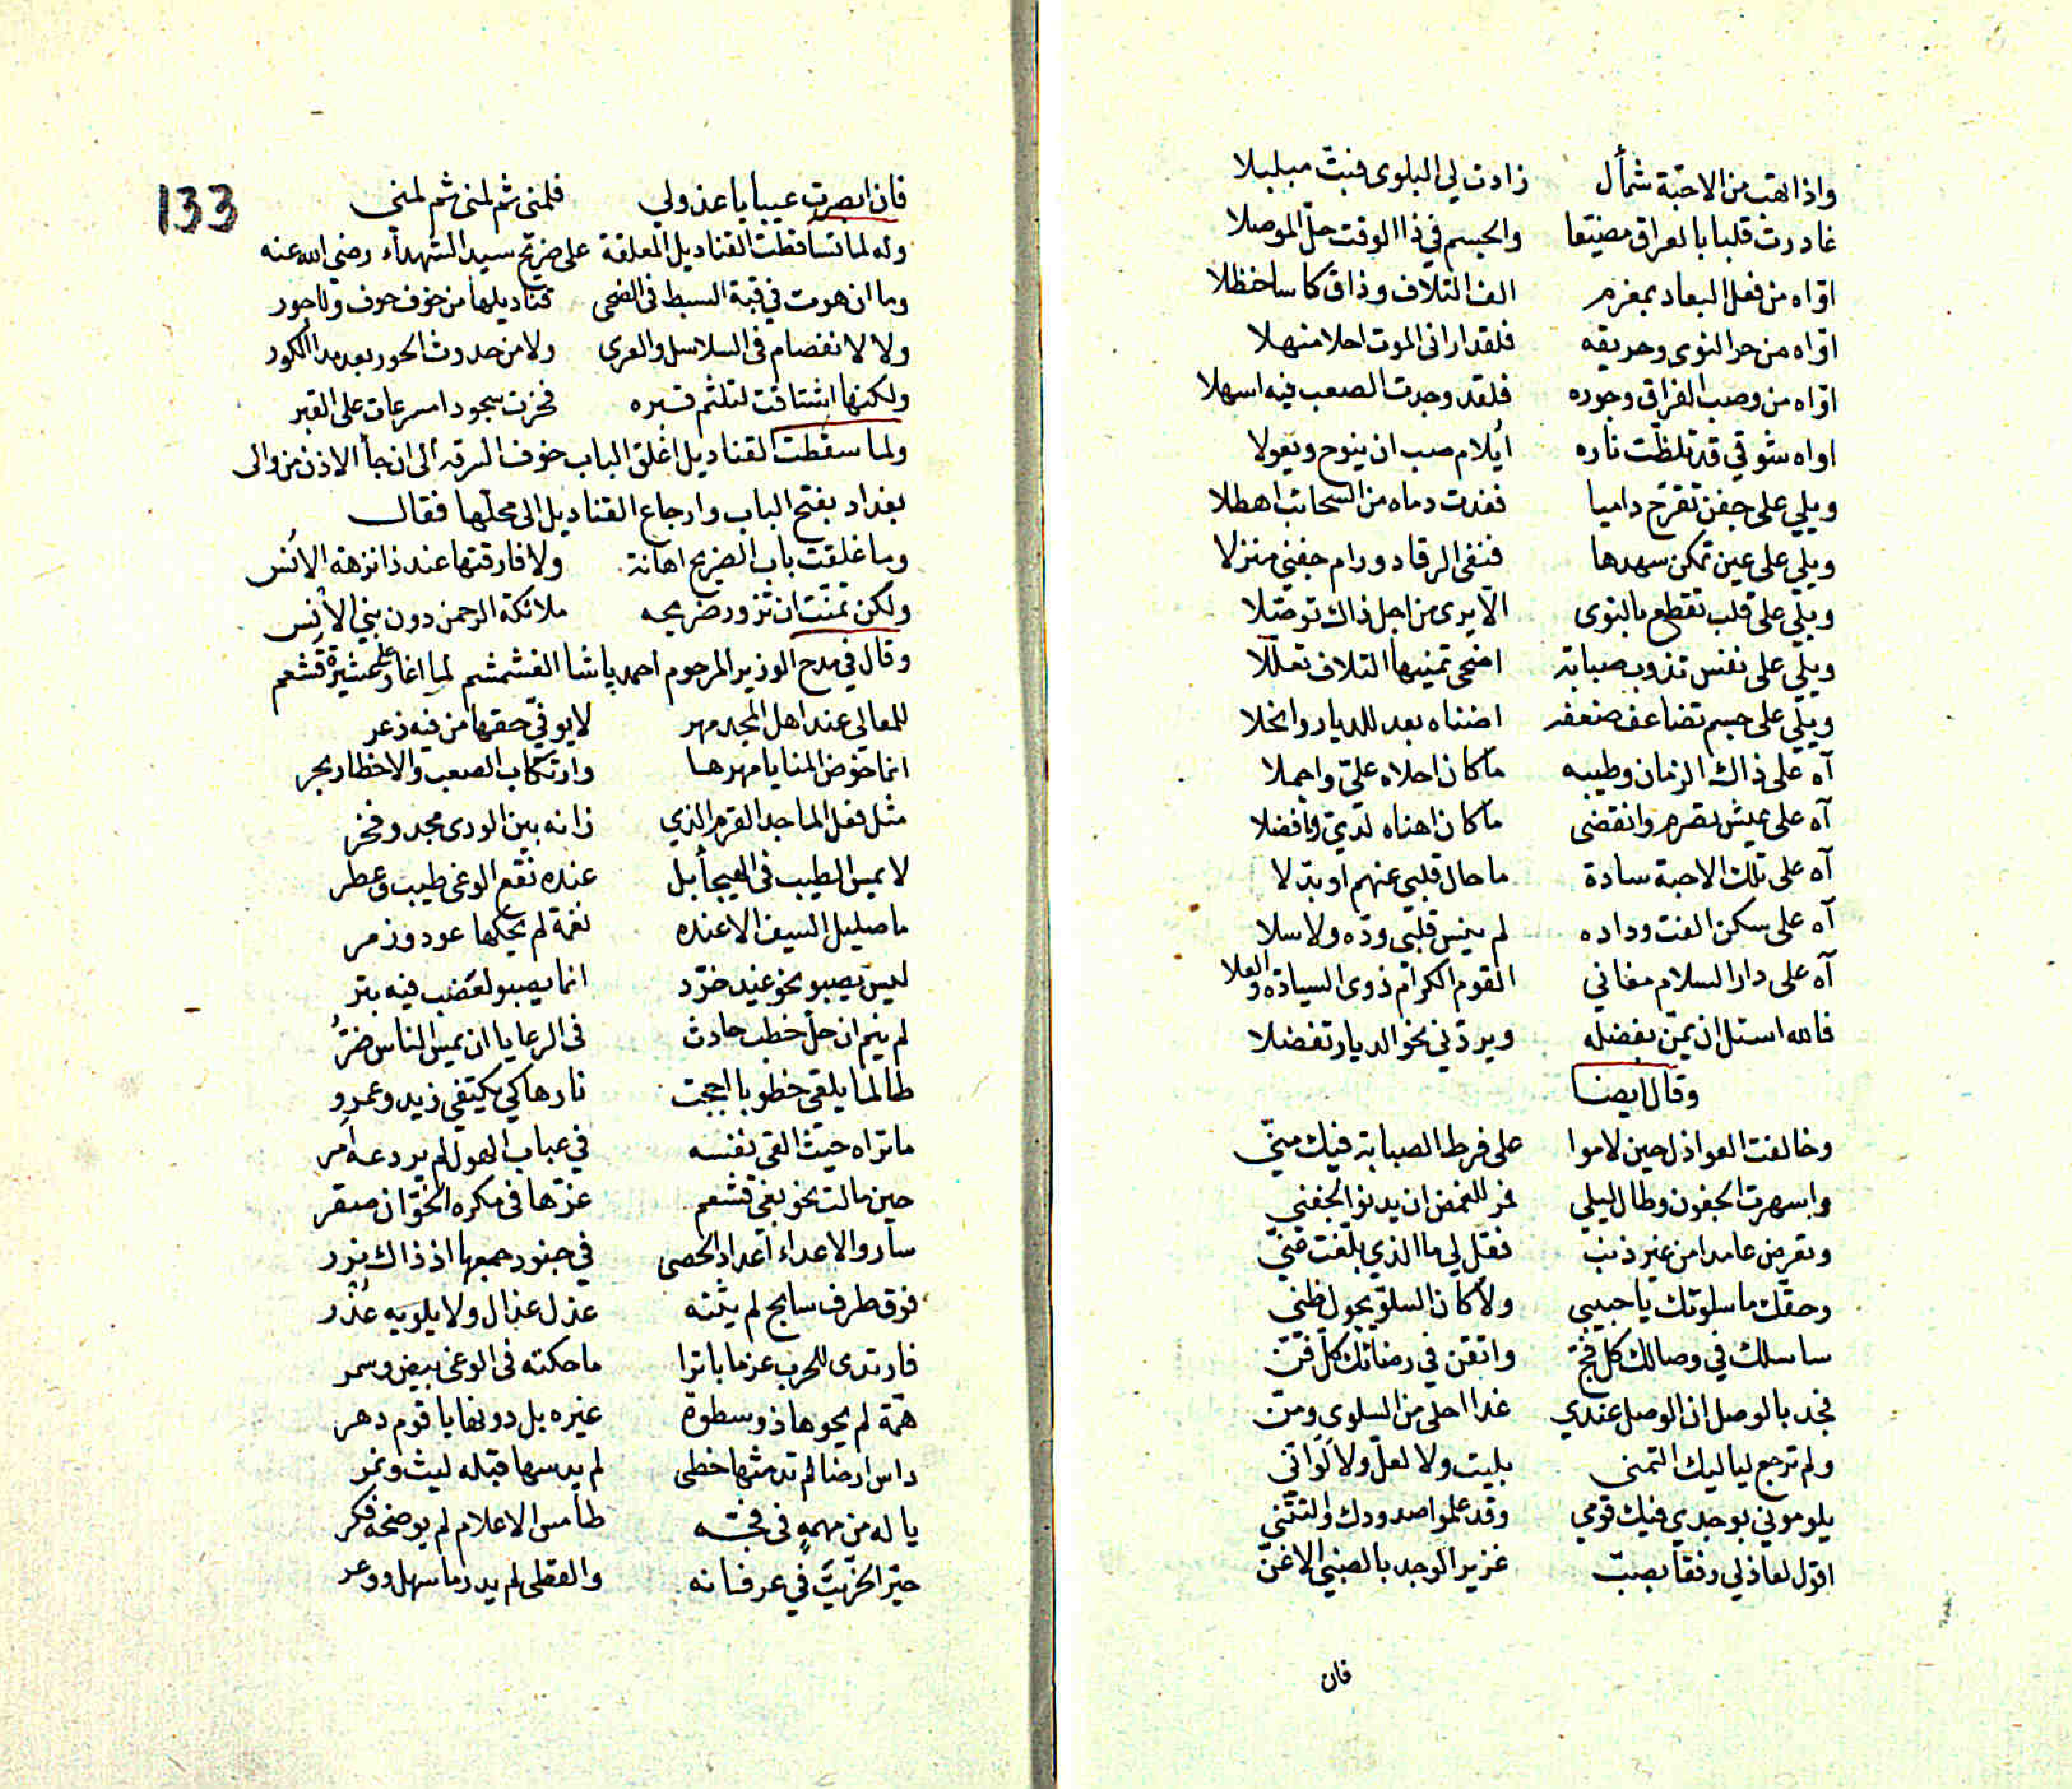 واذا هبت من الاحبّة شمأل زادت لي البلوى فبتّ مبلبلا
غادرت قلبا بالعراق مضيّعا والجسم في ذا الوقت حلّ الموصلا
اوّاه من فعل البعاد بمغرم الف التلاف وذاق كاسا حنظلا
اوّاه من حر النوى وحريقه فلقد ارانى الموت احلا منهلا
اوّاه من وصب الفراق وجوره فلقد وجدت الصعب فيه اسهلا
اواه شوقي قد تلظّت ناره أيلام صب ان ينوح ويعولا
ويلي على جفن تقرّح داميا فغدت دماه من السحائب اهطلا
ويلي على عين تمكن سهدها فنفى الرقاد ورام جفني منزلا
ويلي على قلب تقطع بالنوى الّا يرى من اجل ذاك توصّلا
ويلي على نفس تذوب صبابة اضحى تمنيها التلاف تعلّلا
ويلي على جسم تضاعف ضعفه اضناه بعد للديار وانحلا
آه على ذاك الزمان وطيبه ما كان احلاه عليّ واجملا
آه على عيش تصرم وانقضى ما كان اهناه لديّ وافضلا
آه على تلك الاحبة سادة ما حال قلبي عنهم او بدّلا
آه على سكن الفت وداده لم ينس قلبي ودّه ولا سلا
آه على دار السلام مغاني القوم الكرام ذوى السيادة والعلا
فالله اسئل ان يمنّ بفضله ويردّني نحو الديار تفضلا
وقال ايضا
وخالفت العواذل حين لاموا على فرط الصبابة فيك منّي
واسهرت الجفون وطال ليلي فمر للغمض ان يدنو لجفني
وتعرض عامدا من غير ذنب فقل لي ما الذي بلّغت عنّي
وحقّك ما سلوتك يا حبيبي ولا كان السلوّ يجول ظني
ساسلك في وصالك كل فجّ واتقن في رضائك كلّ فنّ
فجد بالوصل ان الوصل عندي غدا احلى من السلوى ومنّ
ولم ترجع لياليك التمني بليت ولا لعلّ ولا لَوَانّي
يلوموني بوجدي فيك قومي وقد علموا صدودك والتثنّي
اقول لعاذلي رفقا بصبّ غزير الوجد بالصبي الاغنّ
فان
133
فان ابصرت عيبا يا عذولي فلمنى ثم لمنى ثم لمنى
وله لما تساقطت القناديل المعلقة على ضريح سيد الشهداء رضي الله عنه
وما ان هوت في قبة السبط فى الضحى قناديلها من خوف حوف ولا جور
ولا لانفصام فى السلاسل والعرى ولا من حدوث الحور بعد مدا الكور
ولكنها اشتاقت لتلثم قبره فخرت سجودا مسرعات على القبر
ولما سقطت القناديل اغلق الباب خوف السرقه الى ان جأ الاذن من والى
بغداد بفتح الباب وارجاع القناديل الى محلّها فقال
وما غلقت باب الضريح اهانة ولا فارقتها عند ذا نزهة الانس
ولكن تمنّت ان تزور ضريحه ملائكة الرحمن دون بني الأنس
وقال في مدح الوزير المرحوم احمد پاشا الغشمشم لما اغار على عشيرة قشعم
للمعالي عند اهل المجد مهر لا يوفي حقها من فيه ذعر
انما خوض المنايا مهرها وارتكاب الصعب والاخطار بحر
مثل فعل الماجد القرم الذي زانه بين الورى مجد وفخر
لا يمس الطيب فى الهيجأ بل عنده نقع الوغى طيب وعطر
ما صليل السيف الا عنده نغمة لم يحكها عود وزمر
ليس يصبو نحو غيد خرّد انما يصبو لعضب فيه بتر
لم ينم ان حلّ خطب حادث فى الرعايا ان يمس الناس ضرُّ
طالما يلقى خطوبا اججت نارها كي يكتفي زيد وعمرو
ما تراه حيث القى نفسه في عباب الهول لم يردعه امر
حين مالت نحو بغي قشعم عزّها فى مكره الخوّان صقر
سار والاعداء اعداد الحصى في جنود جمعها اذ ذاك نزر
فوق طرف سابح لم يثنه عذل عذال ولا يلويه عُذْر
فارتدى للحرب عزما باترا ما حكته فى الوغى بيض وسمر
همّة لم يحوها ذو سطوة غيره بل دونها يا قوم دهر
داس ارضا لم تدمثها خطى لم يدسها قبله ليث ونمر
يا له من مهمهٍ فى فجّه طامس الاعلام لم يوضحه فكر
حيّر الخرّيت في عرفانه والقطى لم يدر ما سهل ووعر